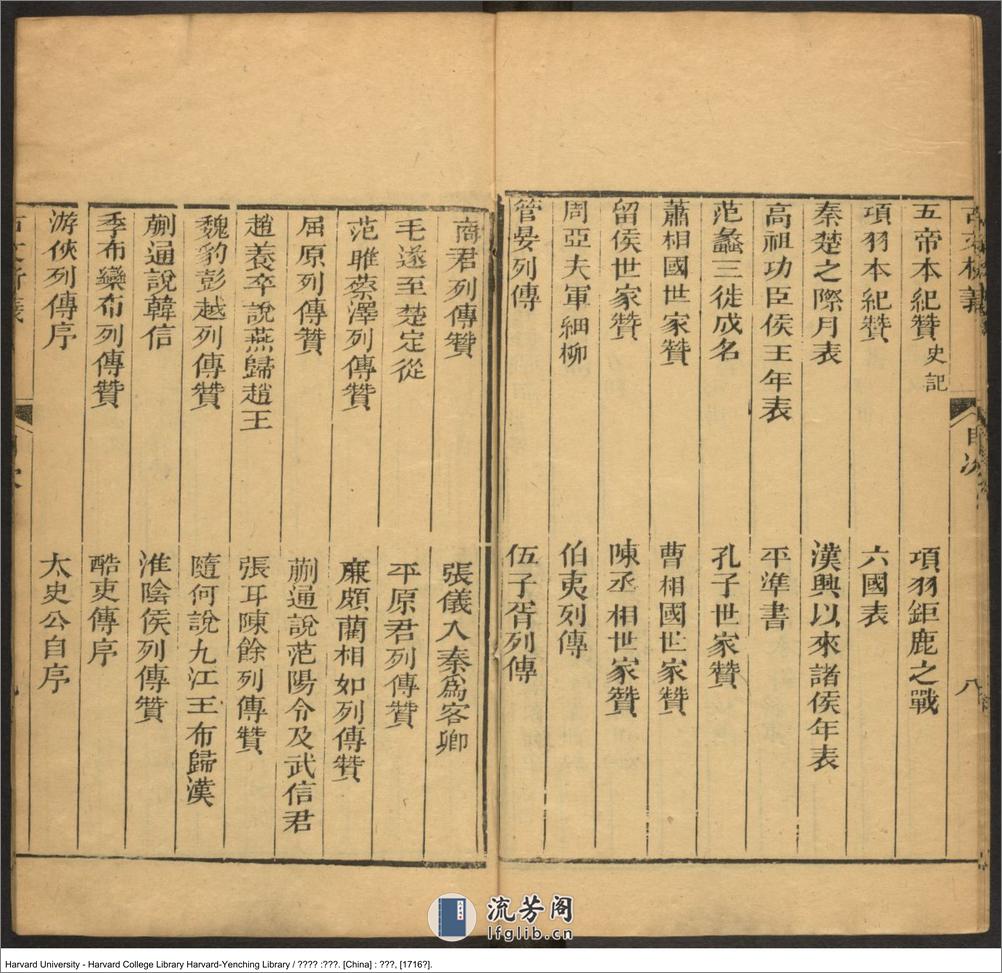 五帝本紀贊 史記 項羽鉅鹿之戰
項羽本紀贊 六國表
秦楚之際月表 漢興以來諸侯年表
高祖功臣侯王年表 平準書
范蠡三徙成名 孔子世家贊
蕭相國世家贊 曹相國世家贊
留侯世家贊 陳丞相世家贊
周亞夫軍細柳 伯夷列傳
管晏列傳 伍子胥列傳
目次 八
商君列傳贊 張儀入秦為客卿
毛遂至楚定從 平原君列傳贊
范雎蔡澤列傳贊 廉頗藺相如列傳贊
屈原列傳贊 蒯通說范陽令及武信君
趙養卒說燕歸趙王 張耳陳餘列傳贊
魏豹彭越列傳贊 隨何說九江王布歸漢
蒯通說韓信 淮陰侯列傳贊
季布欒布列傳贊 酷吏傳序
游俠列傳序 太史公自序
流芳阁
lfglib.cn
Harvard University - Harvard College Library Harvard-Yenching Library / ???? :???. [China] : ???, [1716?].